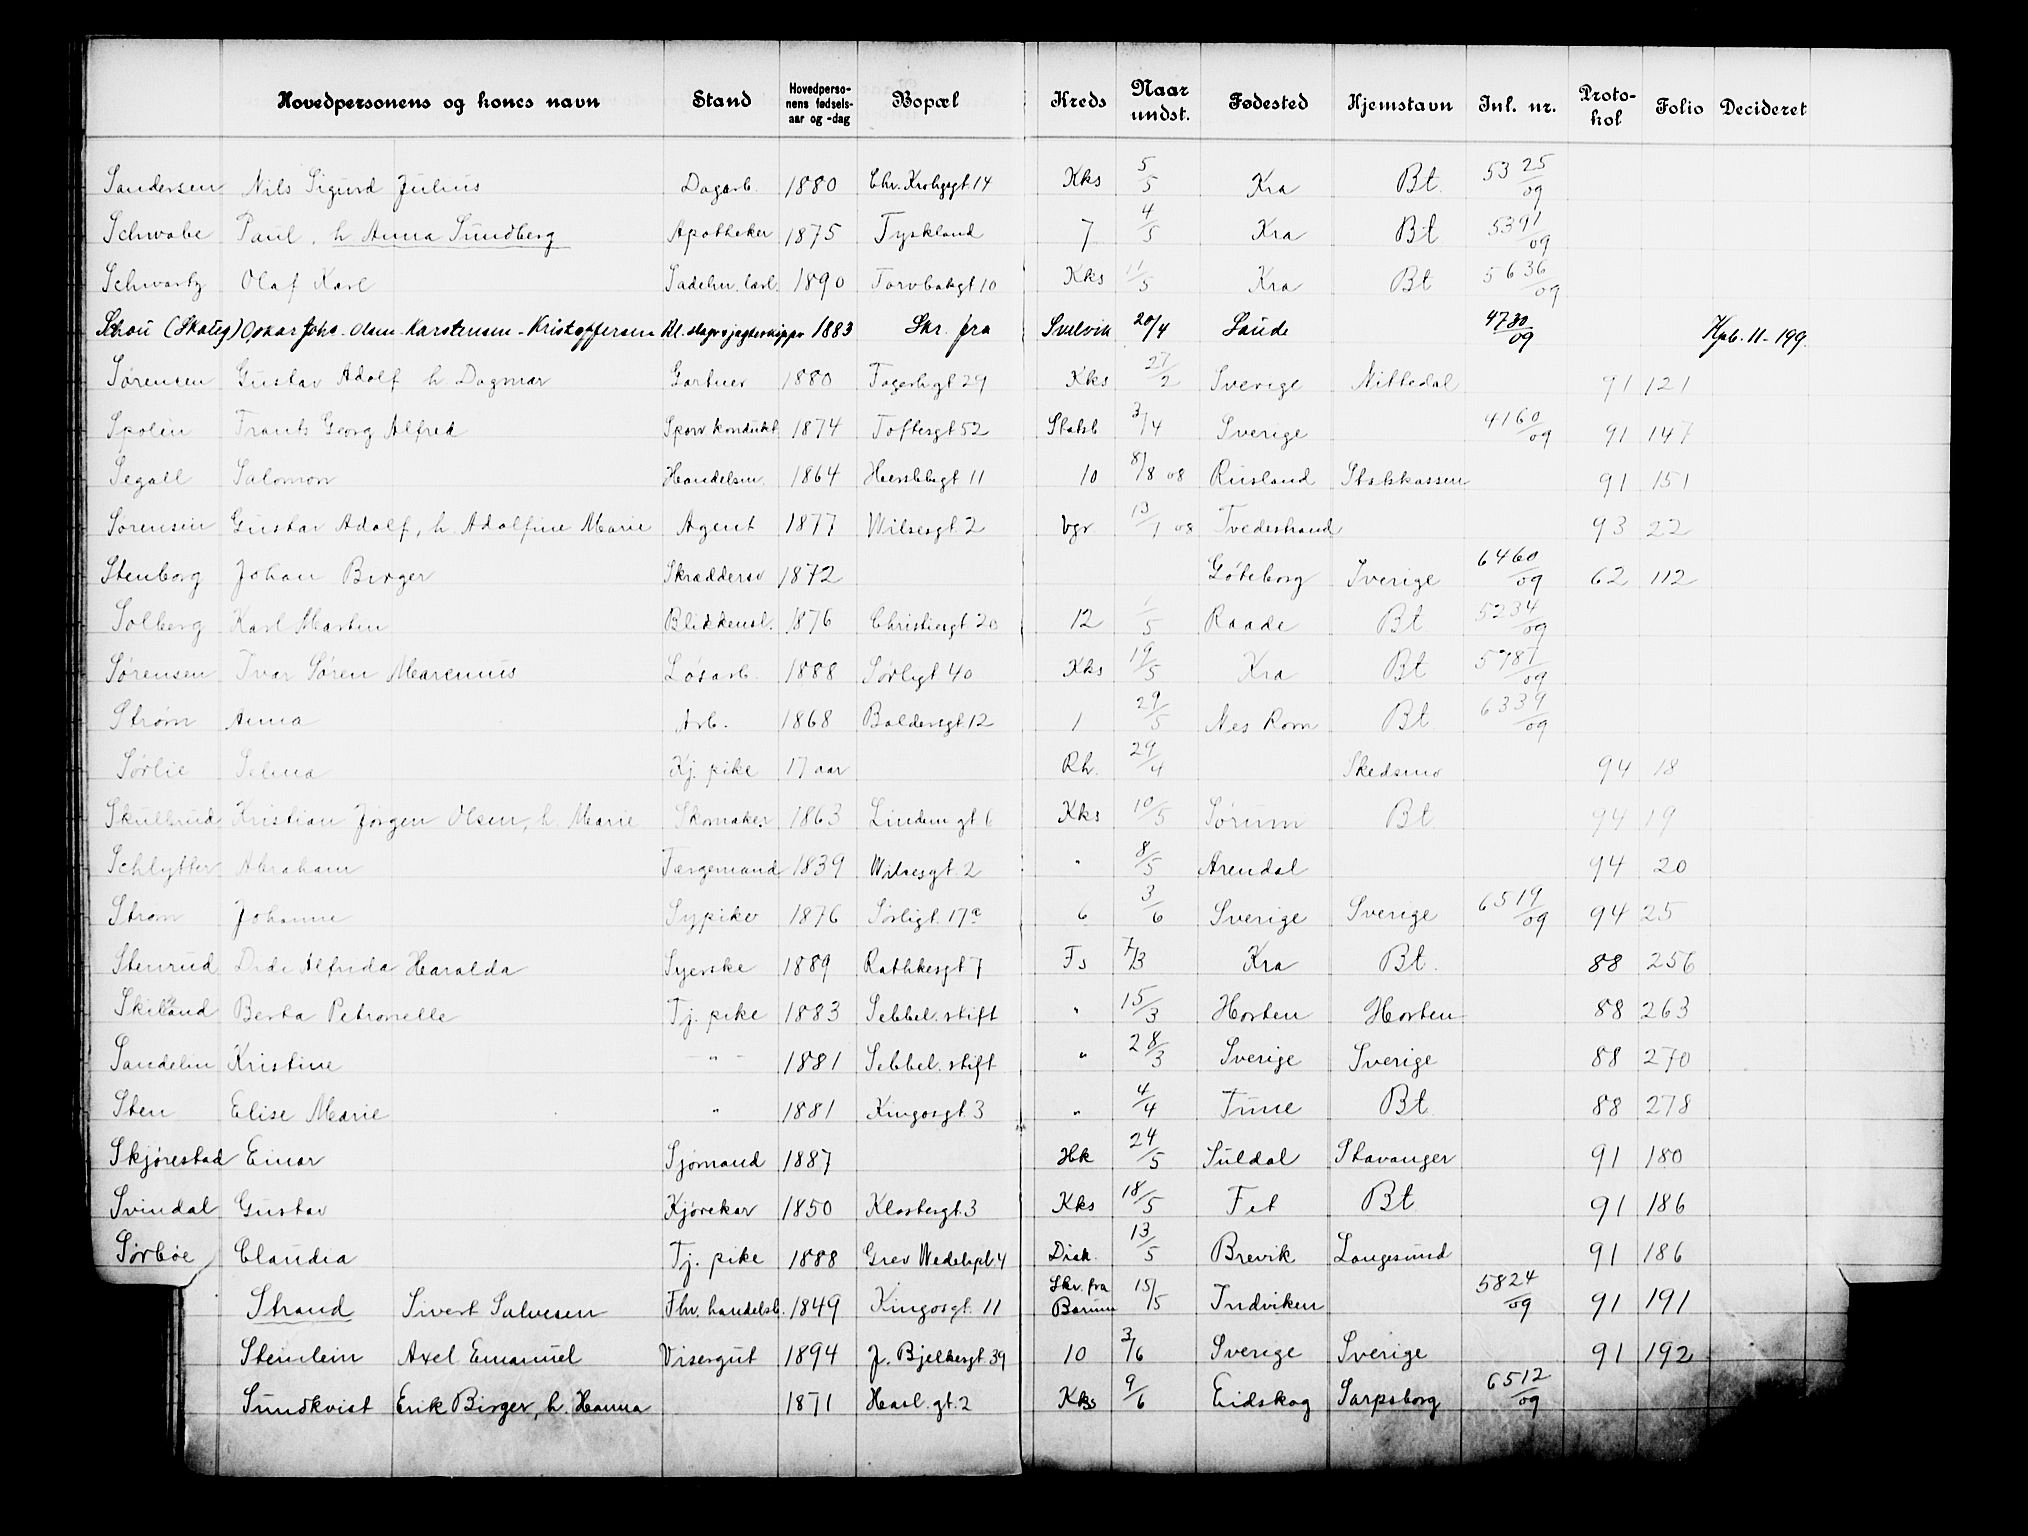 Hovedpersonens og kones navn Stand Hovedperso-nens fødsels-aar og -dag Bopæl Kreds Naar undst. Fødested Hjemstavn Inl. nr. Proto-kol Folio Decideret
Sandersen Nils Sigurd Julius Dagarb. 1880 Chr. Krohgsgt. 14 Kks 5/5 Kra Bt. 5325/09
Schwabe Paul, h. Anna Sundberg Apotheker 1875 Tyskland 7 4/5 Kra Bt 5391/09
Schwartz Olaf Karl Sadelm. lærl. 1890 Torvbakgt 10 Kks 11/5 Kra Bt 5636/09
Schou (Skaug) Oskar Johs. Olsen-Karstensen-Kristoffersen 1883 Skr. fra Svelvik 20/4 Sande 4730/09 Kpb. 11-199.
Sørensen Gustav Adolf h Dagmar Gartner 1880 Fagerhgt 29 Kks 27/2 Sverige Nittedal 91 121
Spolén Frants Georg Alfred Sporv. kondukt. 1874 Toftesgt 52 Statsb 3/4 Sverige 4160/09 91 147
Segall Salomon Handelsm. 1864 Herslebsgt 11 10 8/8 08 Rusland Statskassen 91 151
Sørensen Gustav Adolf, h. Adolfine Marie Agent 1877 Wilsesgt 2 Vgr. 13/1 08 Tvedestrand 93 22
Stenborg Johan Birger Skræddersv 1872 Göteborg Sverige 6460/09 62 112
Solberg Karl Marten Blikkensl. 1876 Christiesgt 20 12 1/5 Raade Bt 5234/09
Sørensen Ivar Søren Marenius Løsarb. 1888 Sørligt. 40 Kks 19/5 Kra Bt 5987/09
Strøm Anna Arb. 1868 Baldersgt 12 1 29/5 Nes Rom Bt 6339/09
Sørlie Selma Kj. pike 17 aar Rh. 29/4 Skedsmo 94 18
Skulbrud Kristian Jørgen Olsen, h. Marie Skomaker 1863 Lindem gt 6 Kks 10/5 Sørum Bt. 94 19
Schlytter Abraham Færgemand 1839 Wilsesgt. 2 " 8/5 Arendal 94 20
Strøm Johanne Sypike 1876 Sørligt. 17a 6 3/6 Sverige Sverige 6519/09 94 25
Stenrud Didi Alfrida Haralda Syerske 1889 Rathkesgt 7 Fs 7/3 Kra Bt. 88 256
Skiland Berta Petronelle Tj. pike 1883 Sebbel. stift " 15/3 Horten Horten 88 263
Sandelin Kristine - " - 1881 Sebbel. stift " 28/3 Sverige Sverige 88 270
Sten Elise Marie " 1881 Kingosgt 3 " 4/4 Tune Bt 88 278
Skjørestad Einar Sjømand 1887 Hk 24/5 Suldal Stavanger 91 180
Svindal Gustav Kjørekar 1850 Klostergt. 3 Kks 18/5 Fet Bt 91 186
Sørbøe Claudia Tj. pike 1888 Grev Wedelspl. 4 Diak. 13/5 Brevik Langesund 91 186
Strand Sivert Salvesen Fhv. handelsb. 1849 Kingosgt. 11 Skr. fra Bærum 15/5 Indviken 5824/09 91 191
Steinlein Axel Emanuel Visergut 1894 J. Bjelkesgt. 39 10 3/6 Sverige Sverige 91 192
Sundkvist Erik Birger, h. Hanna 1871 Hasl. gt. 2 Kks 9/6 Eidskog Sarpsborg 6512/09